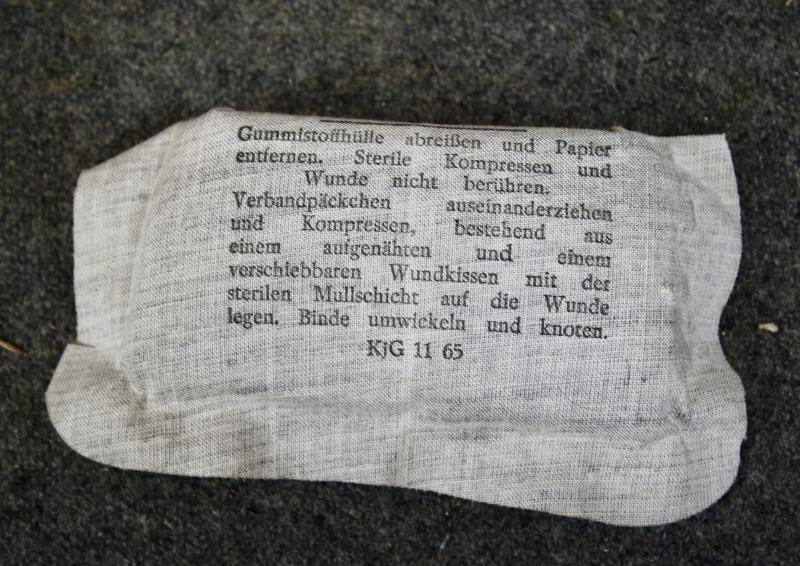 Gummistoffhülle abreißen und Papier
entfernen. Sterile Kompressen und
Wunde nicht berühren.
Verbandpäckchen auseinanderziehen
und Kompressen, bestehend aus
einem aufgenähten und einem
verschiebbaren Wundkissen mit der
sterilen Mullschicht auf die Wunde
legen. Binde umwickeln und knoten.
KjG 11 65